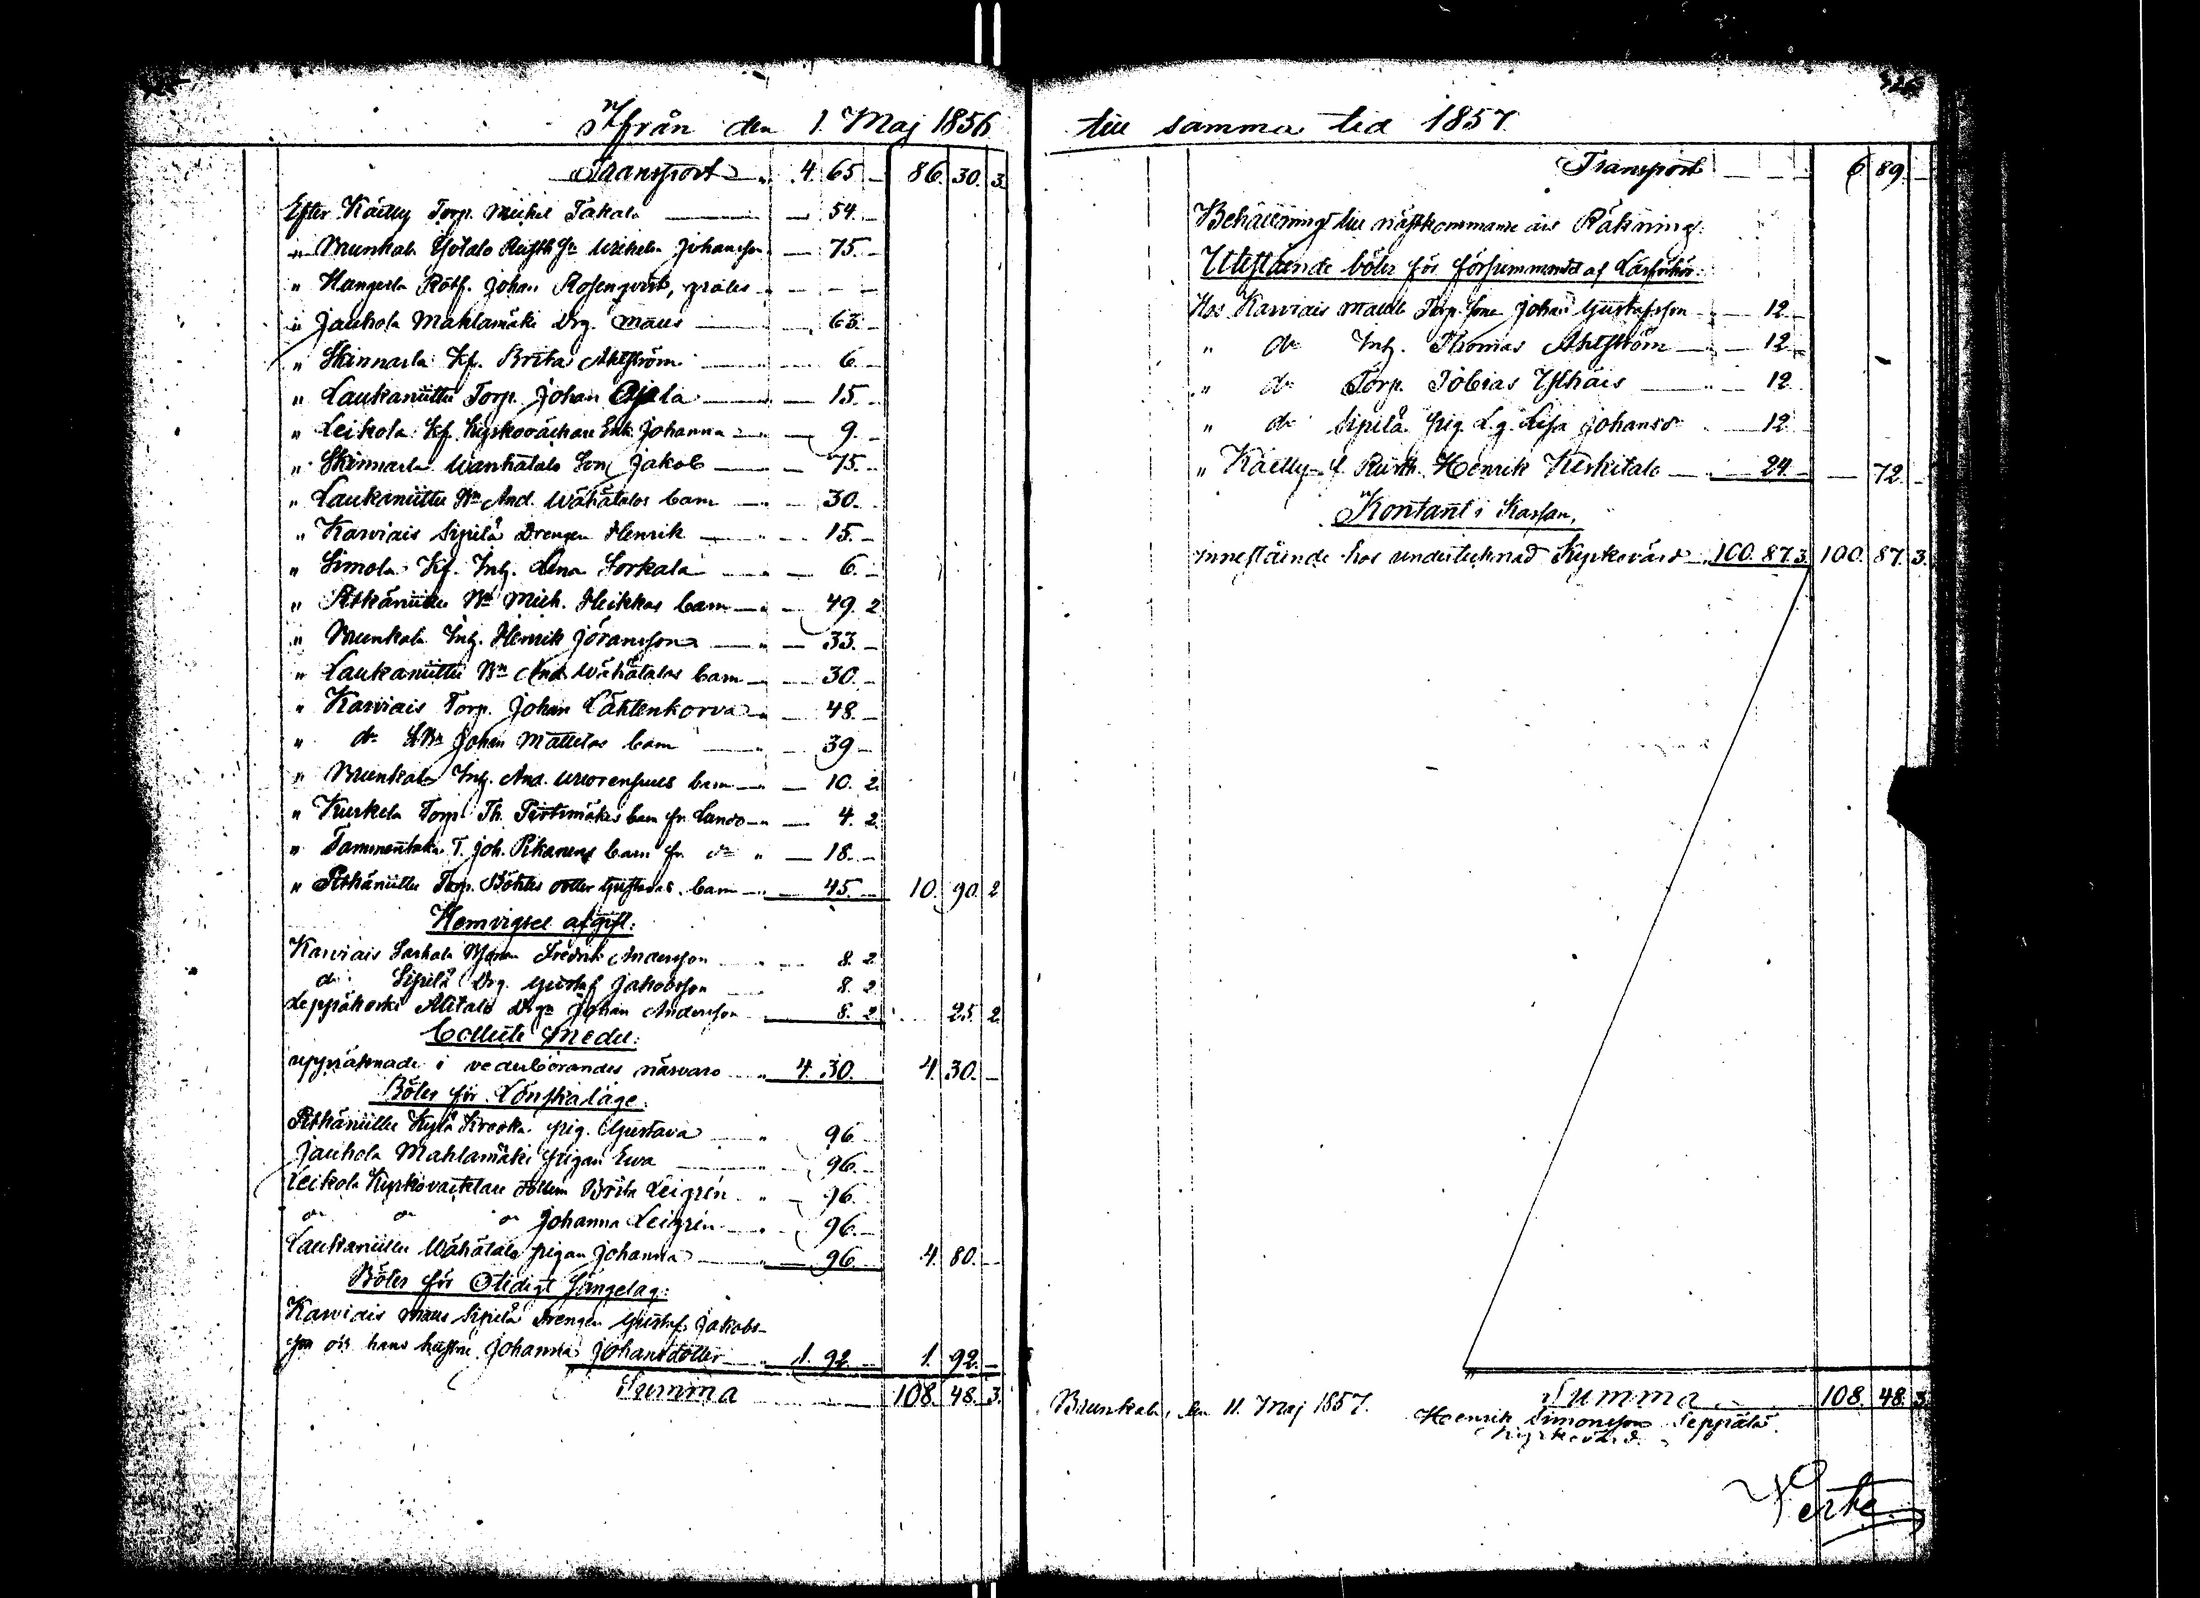 Ifrån den 1. Maj 1856
Transport 4. 65 — 86. 30. 3.
Efter Käelly Torp. Michel Takala — 54. —
" Brunkala Yötalo Rusth. Sn Wilhelm Johansson — 75. —
" Hangerla Rotf. Johan Rosenqvist, gratis — — —
" Jauhola Mahlamäki Drg. Matts — 63. —
" Skinnarla Kf. Brita Ahlström — 6. —
" Laukaniittu Torp. Johan Ojala — 15. —
" Leikola Kf. Kyrkoväktare Enk. Johanna — 9. —
" Skinnarla Wanhatalo Son Jakob — 75. —
" Laukaniittu Bn And. Wähätalos barn — 30. —
" Karviais Sipilä Drengen Henrik — 15. —
" Simola Kf. Inh. Lena Sorkala — 6. —
" Pitkäniittu Bn Mich. Heikkas barn — 49. 2
" Brunkala Inh. Henrik Jöransson — 33. —
" Laukaniittu Bn And. Wähätalos barn — 30. —
" Karviais Torp. Johan Lähtenkorva — 48. —
" do Johan Mattelas barn — 39 —
" Brunkala Inh. And. barn — 10. 2.
" Kurkela Torp. Th. barn fr. Lando — 4. 2.
" Tammentaka T. Joh. Pikanens barn fr. do " — 18. —
" Pitkäniittu Torp. dotter Gustavas barn — 45. — 10. 90. 2
Hemvigsel afgift:
Karviais Sorkala Fredrik Andersson 8. 2
do Sipilä Drg. Gustaf Jakobsson 8. 2
Leppäkoski Alitalo Drgn Johan Andersson 8. 2 25. 2.
Collecte Medel:
uppräknade i vederbörandes närvaro 4. 30. 4. 30. —
Böter för Lönskaläge:
Pitkäniittu Kylä Krooka pig. Gustava 96 —
Jauhola Mahlamäki pigan Ewa 96. —
Leikola Kyrkovaktare dottern Brita Leigrén 96. —
do do do Johanna Leigrén 96. —
Laukaniittu Wähätalo pigan Johanna 96 4. 80. —
Böter för Otidigt Sängelag:
Karviais Sipilä Drengen Gustaf Jakobs-
son och hans hustru Johanna Johansdotter 1. 92 1. 92. —
Summa 108. 48. 3.
till samma tid 1857.
Transport 6 89. —
Behållning till nästkommande års Räkning:
Utestående böter för försummandet af Läsförhör:
Hos Karviais Torp. Sone Johan Gustafsson 12 —
" do Inh. Thomas Ahlström 12 —
" do Torp. Tobias Ylhäis 12
" do Sipilä Lisa Johansdr 12
" Käelly Rusth. Henrik Keskitalo 24. — 72. —
Kontant i Kassan,
innestående hos undertecknad Kyrkovärd 100. 87. 3. 100. 87. 3.
Summa 108. 48. 3
Brunkala, den 11. Maj 1857. Henrik Simonsson Seppälä.
Kyrkovärd.